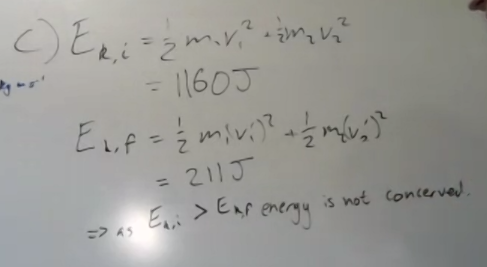 c) E_{k,i} = ½ m₁v₁² + ½ m₂v₂²
= 1160J
kg m s⁻¹
E_{k,f} = ½ m₁(v₁')² + ½ m₂(v₂')²
= 211J
⇒ as E_{k,i} > E_{k,f} energy is not concerved.